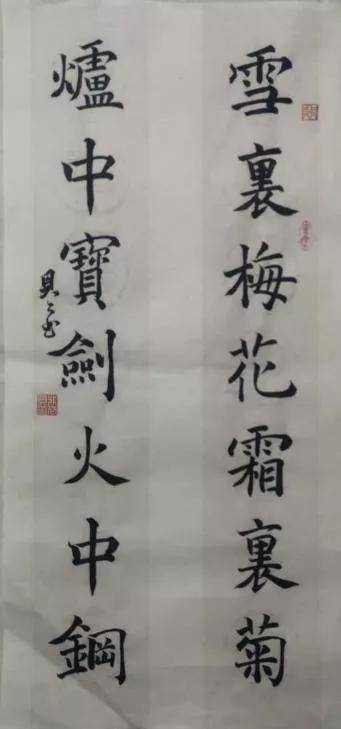 雪裏梅花霜裏菊
爐中寶劍火中鋼